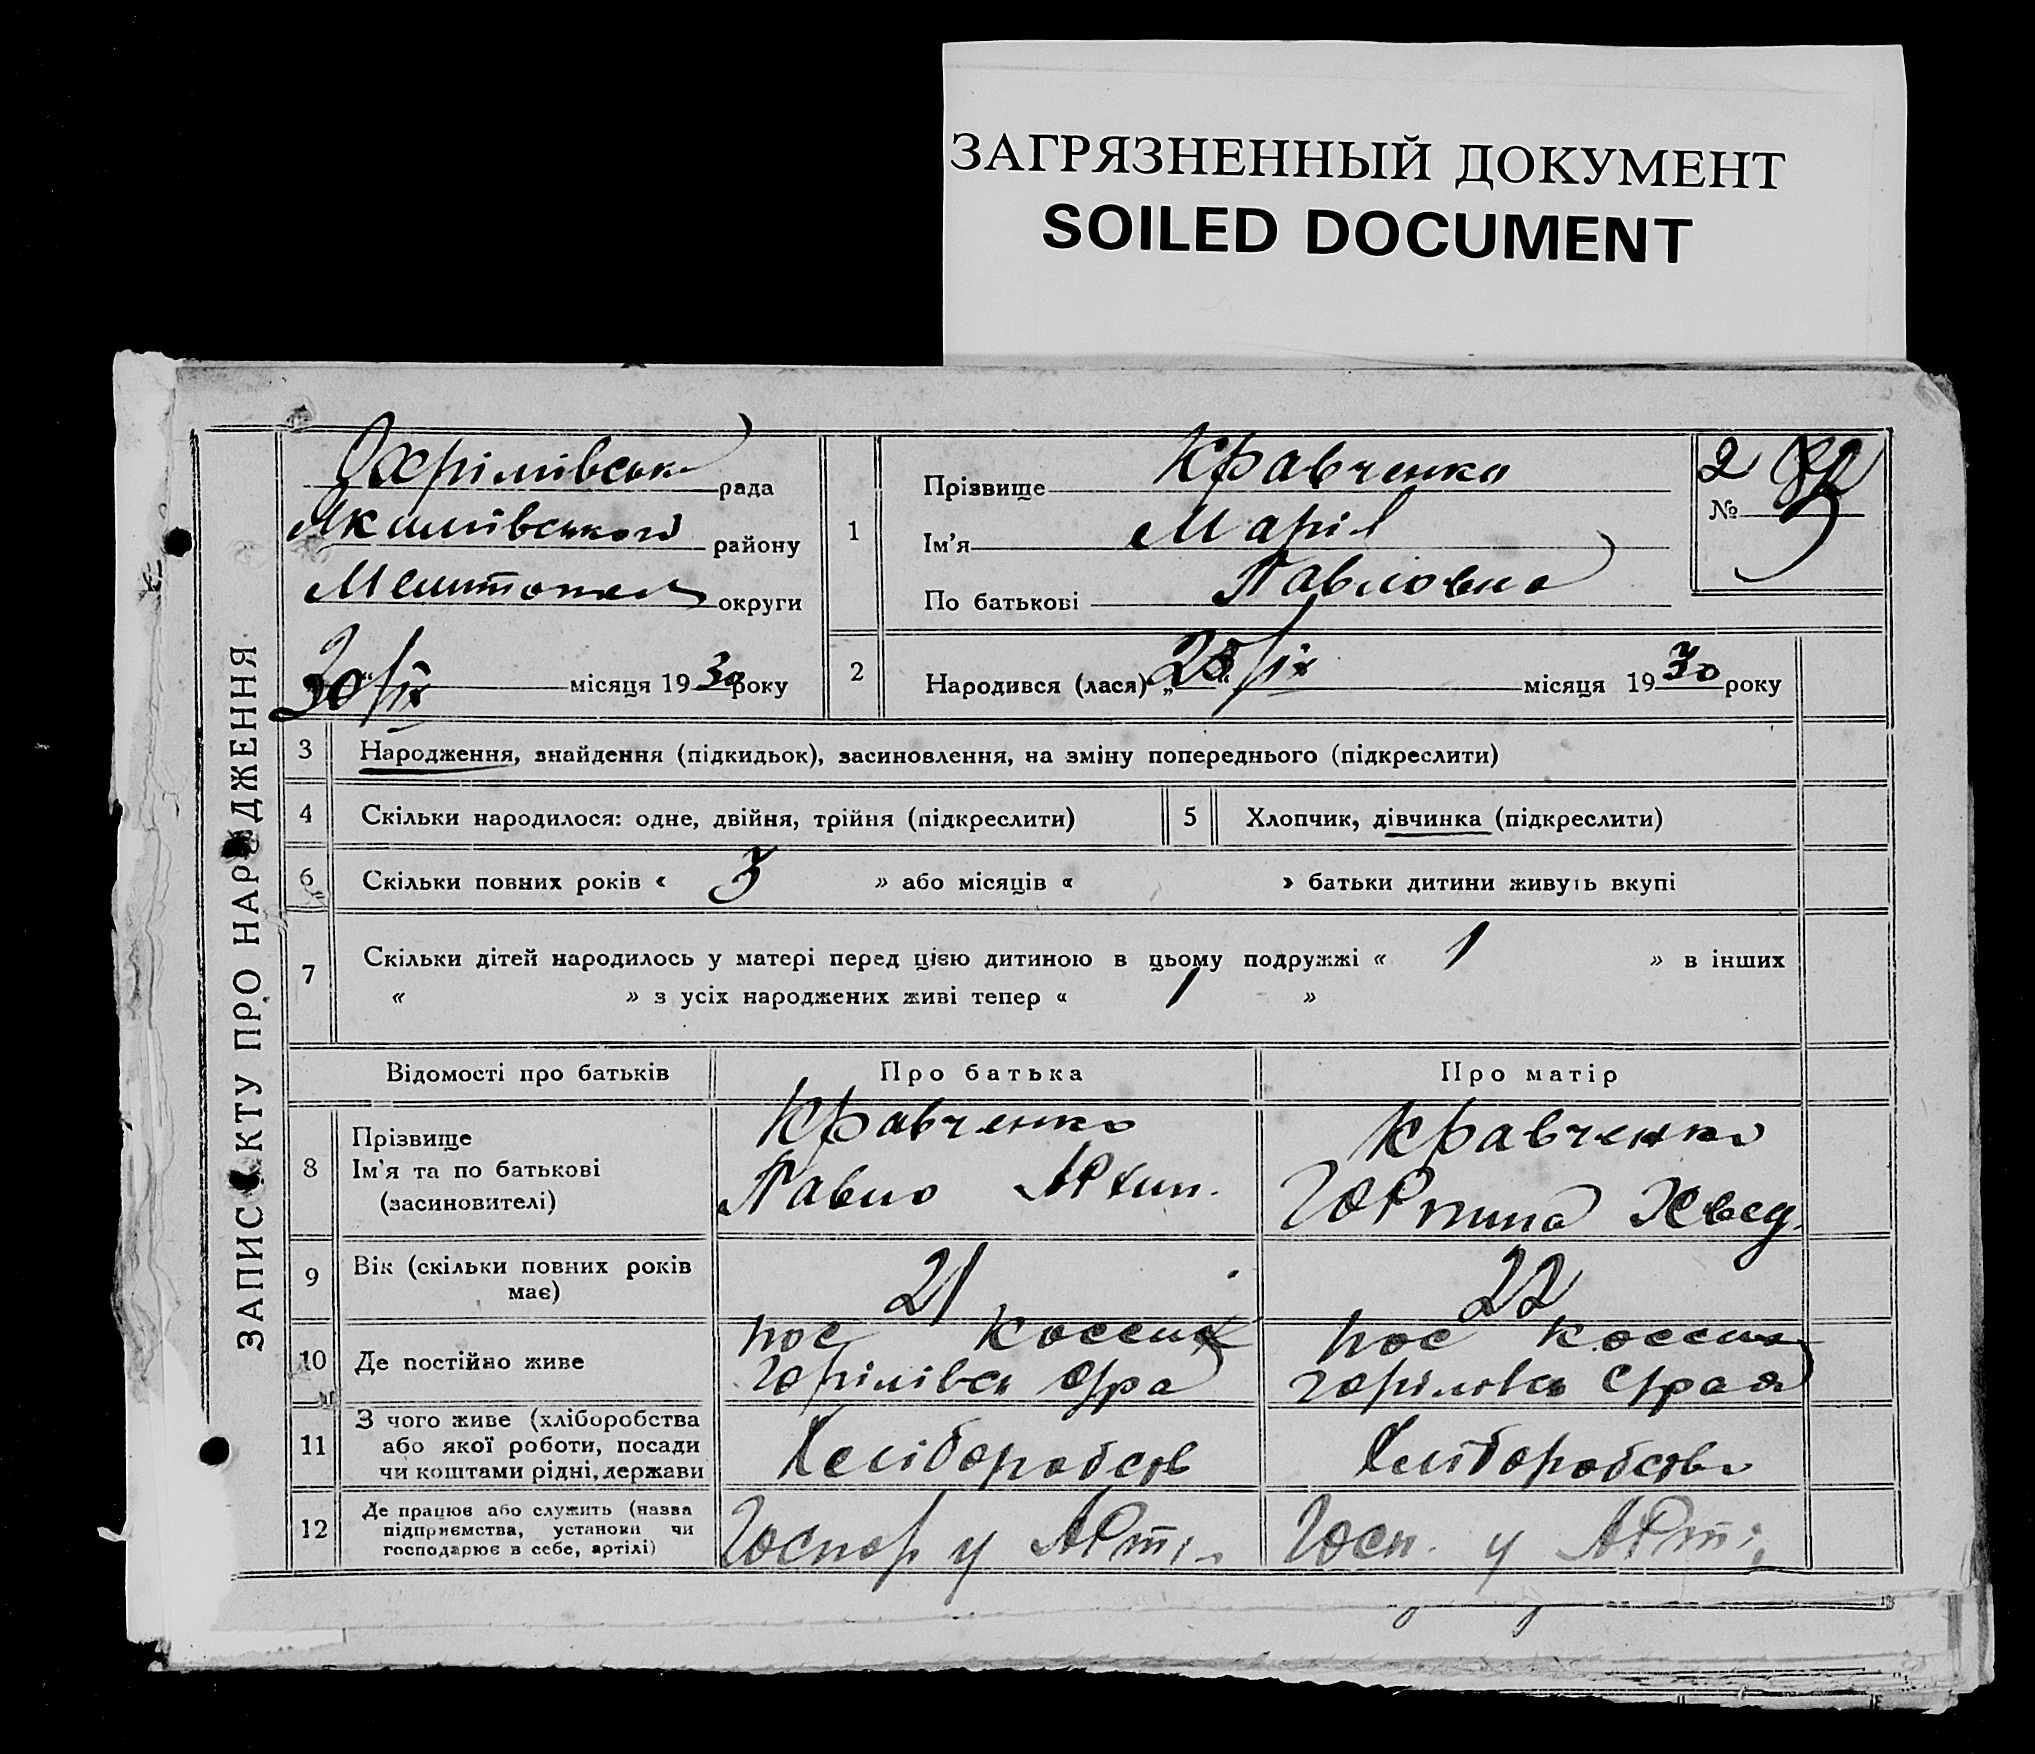 ЗАГРЯЗНЕННЫЙ ДОКУМЕНТ
SOILED DOCUMENT
ЗАПИС АКТУ ПРО НАРОДЖЕННЯ
Охрімівськ рада
Якимівського району
Мелитопол округи
30/ix місяця 1930 року
1
Прізвище Кравченко
Ім'я Марія
По батькові Павловна
2
№
2 Народився (лася) „25“/ix місяця 1930 року
3 Народження, знайдення (підкидьок), засиновлення, на зміну попереднього (підкреслити)
4 Скільки народилося: одне, двійня, трійня (підкреслити)
5 Хлопчик, дівчинка (підкреслити)
6 Скільки повних років « 3 » або місяців « » батьки дитини живуть вкупі
7 Скільки дітей народилось у матері перед цією дитиною в цьому подружжі « 1 » в інших
« » з усіх народжених живі тепер « 1 »
Відомості про батьків Про батька Про матір
8 Прізвище
Ім'я та по батькові
(засиновителі)
Кравченко
Павло Архип.
Кравченко
Хвед.
9 Вік (скільки повних років
має)
21
22
10 Де постійно живе
пос
пос
11 З чого живе (хліборобства
або якої роботи, посади
чи коштами рідні, держави
Хеліборобств
Хліборобство
12 Де працює або служить (назва
підприємства, установи чи
господарює в себе, артілі)
Господ у Арті
Госп. у Арті